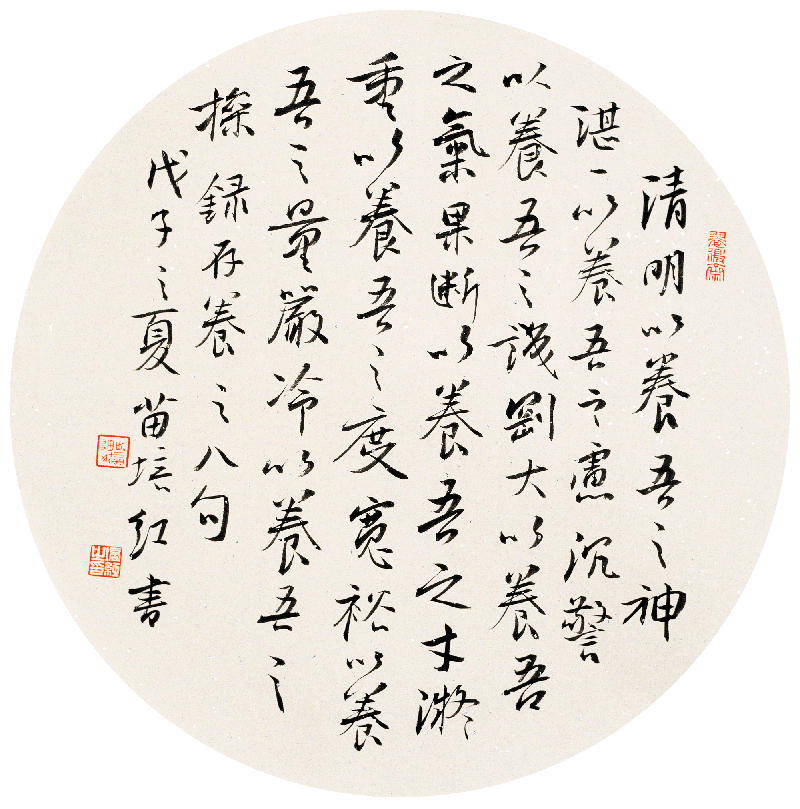 清明以養吾之神
湛一以養吾之慮沉警
以養吾之識剛大以養吾
之氣果斷以養吾之才凝
重以養吾之度寬裕以養
吾之量嚴冷以養吾之
操錄存養之八句
戊子之夏苗培紅書